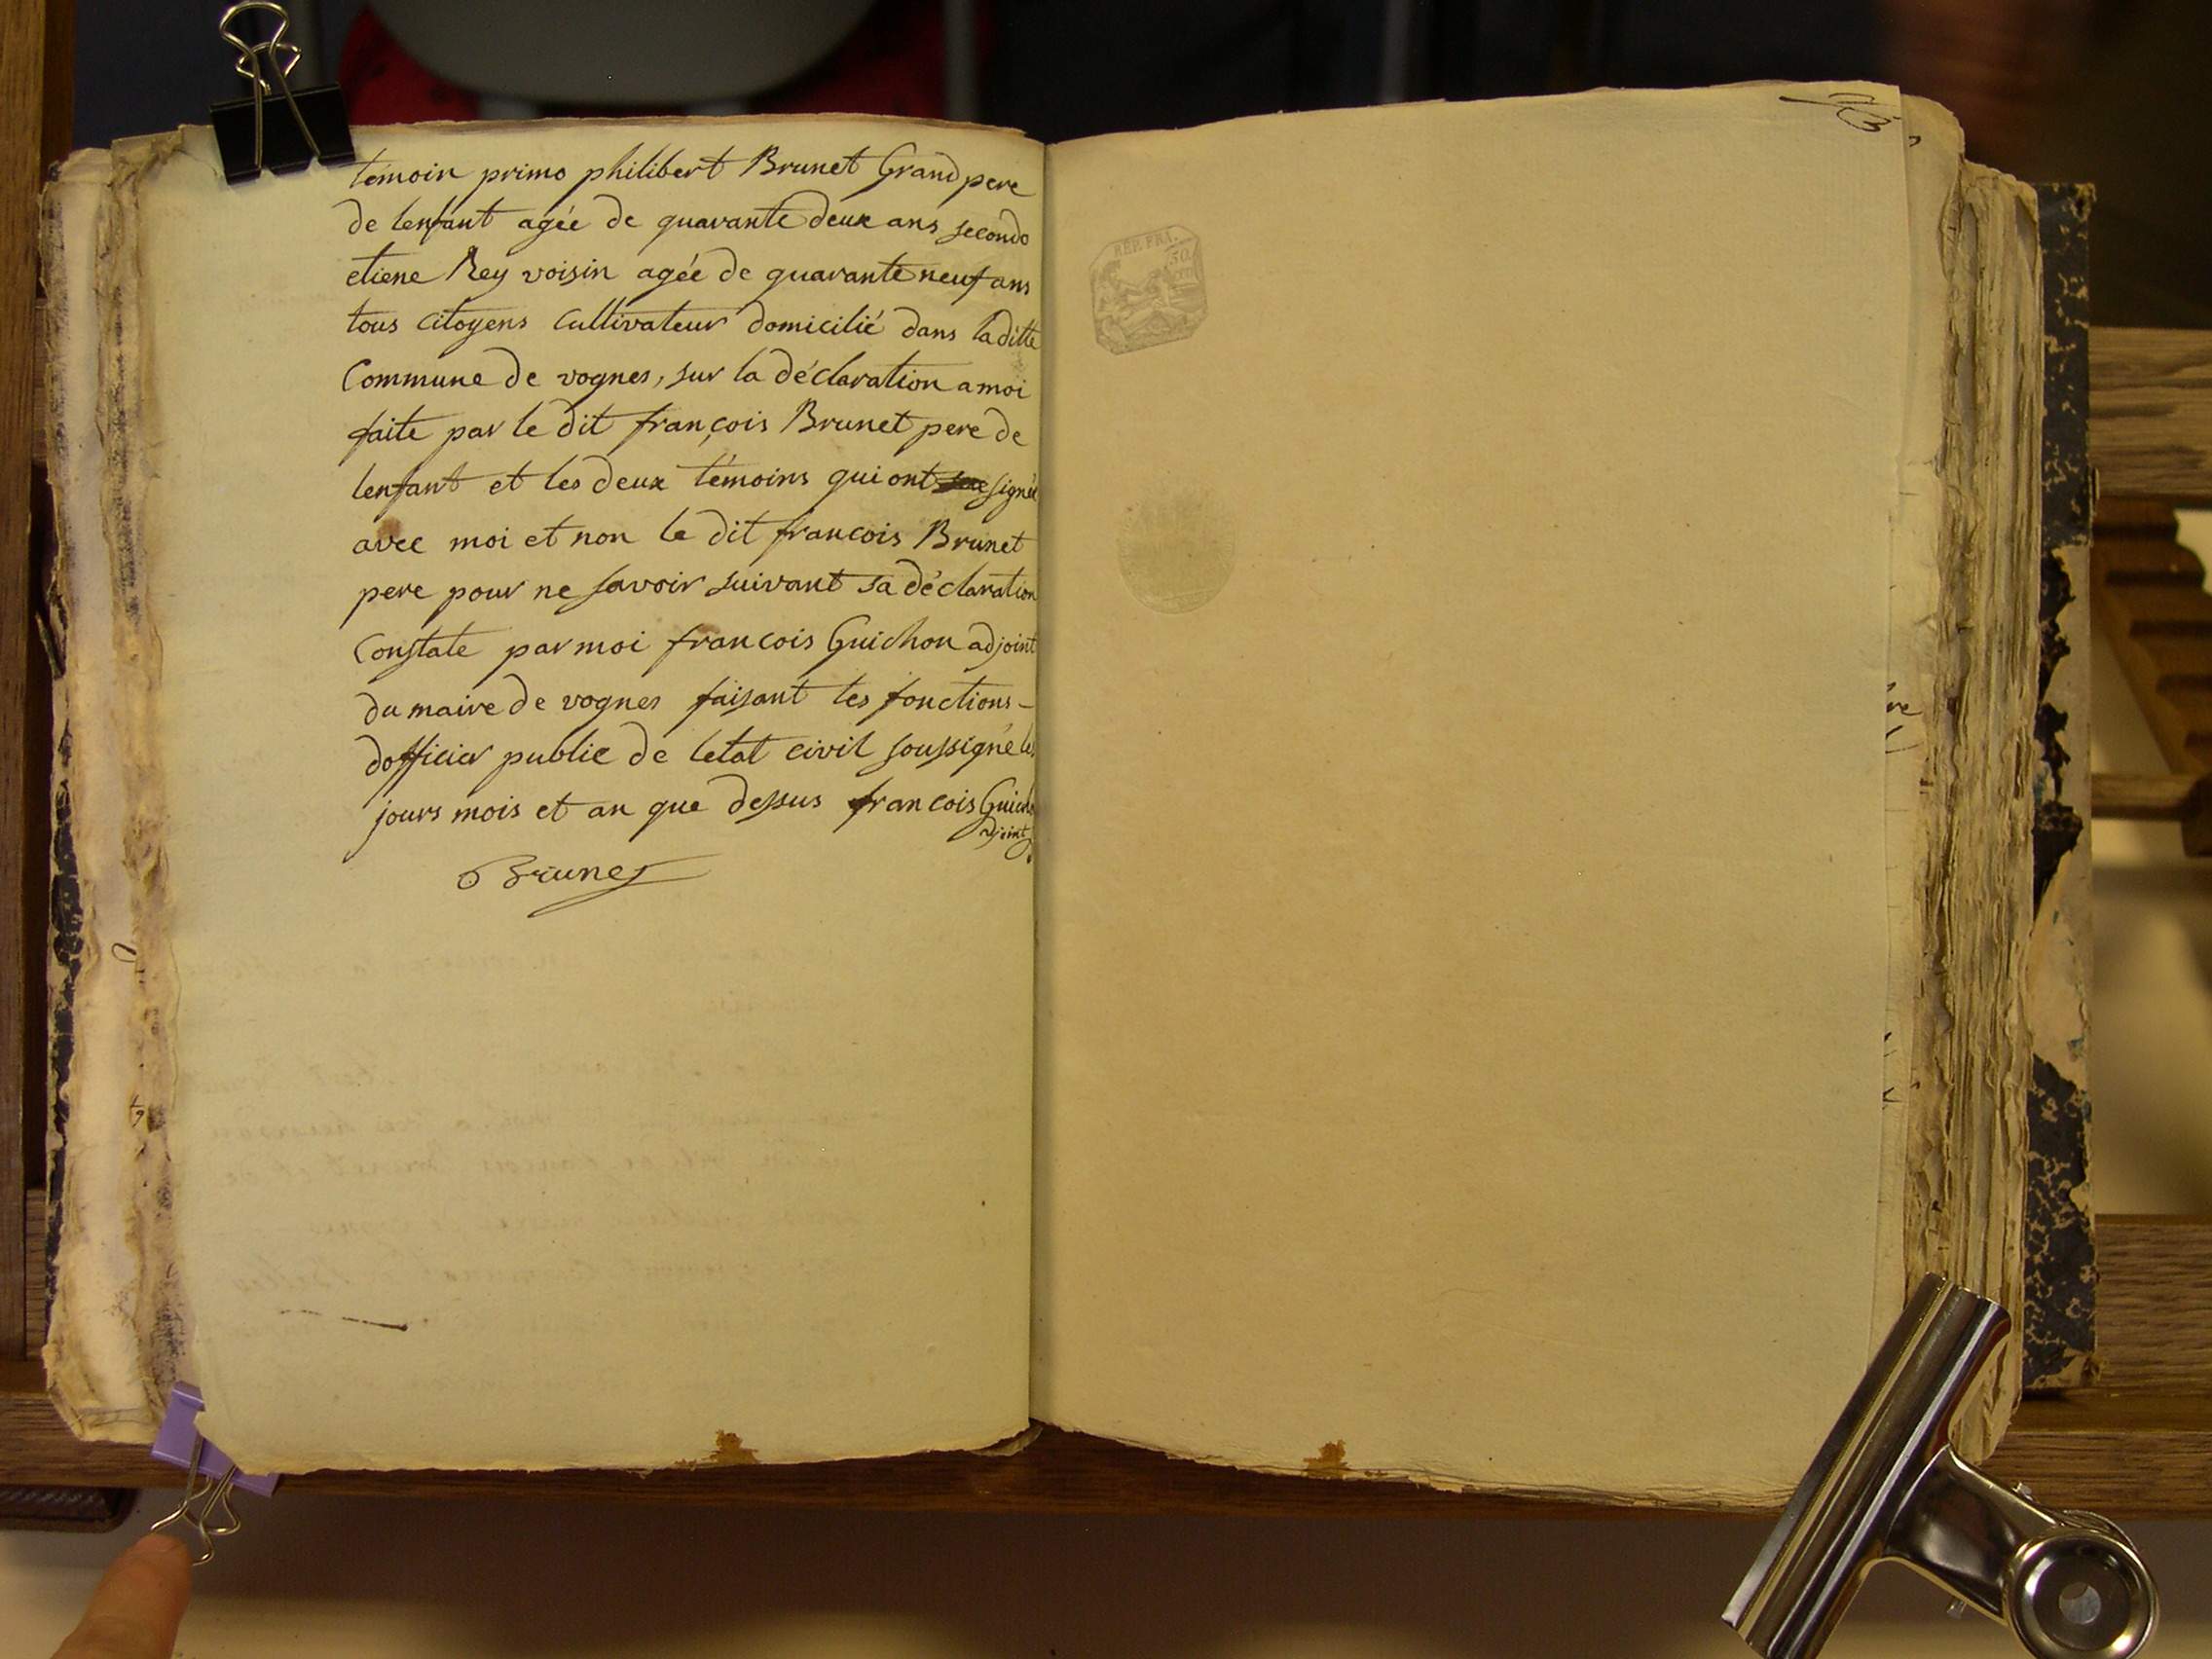 témoin primo philibert Brunet Grand pere
de lenfant agée de quarante deux ans secondo
etiene Rey voisin agée de quarante neuf ans
tous citoyens cultivateur domicilié dans la ditte
Commune de vognes, sur la déclaration a moi
faite par le dit françois Brunet pere de
lenfant et les deux témoins qui ont signée
avec moi et non le dit francois Brunet
pere pour ne savoir suivant sa déclaration
Constate par moi francois Guichon adjoint
du maire de vognes faisant les fonctions -
dofficier public de letat civil soussigné les
jours mois et an que dessus francois Guichon
adjoint
Brunet
REP. FRA.
50